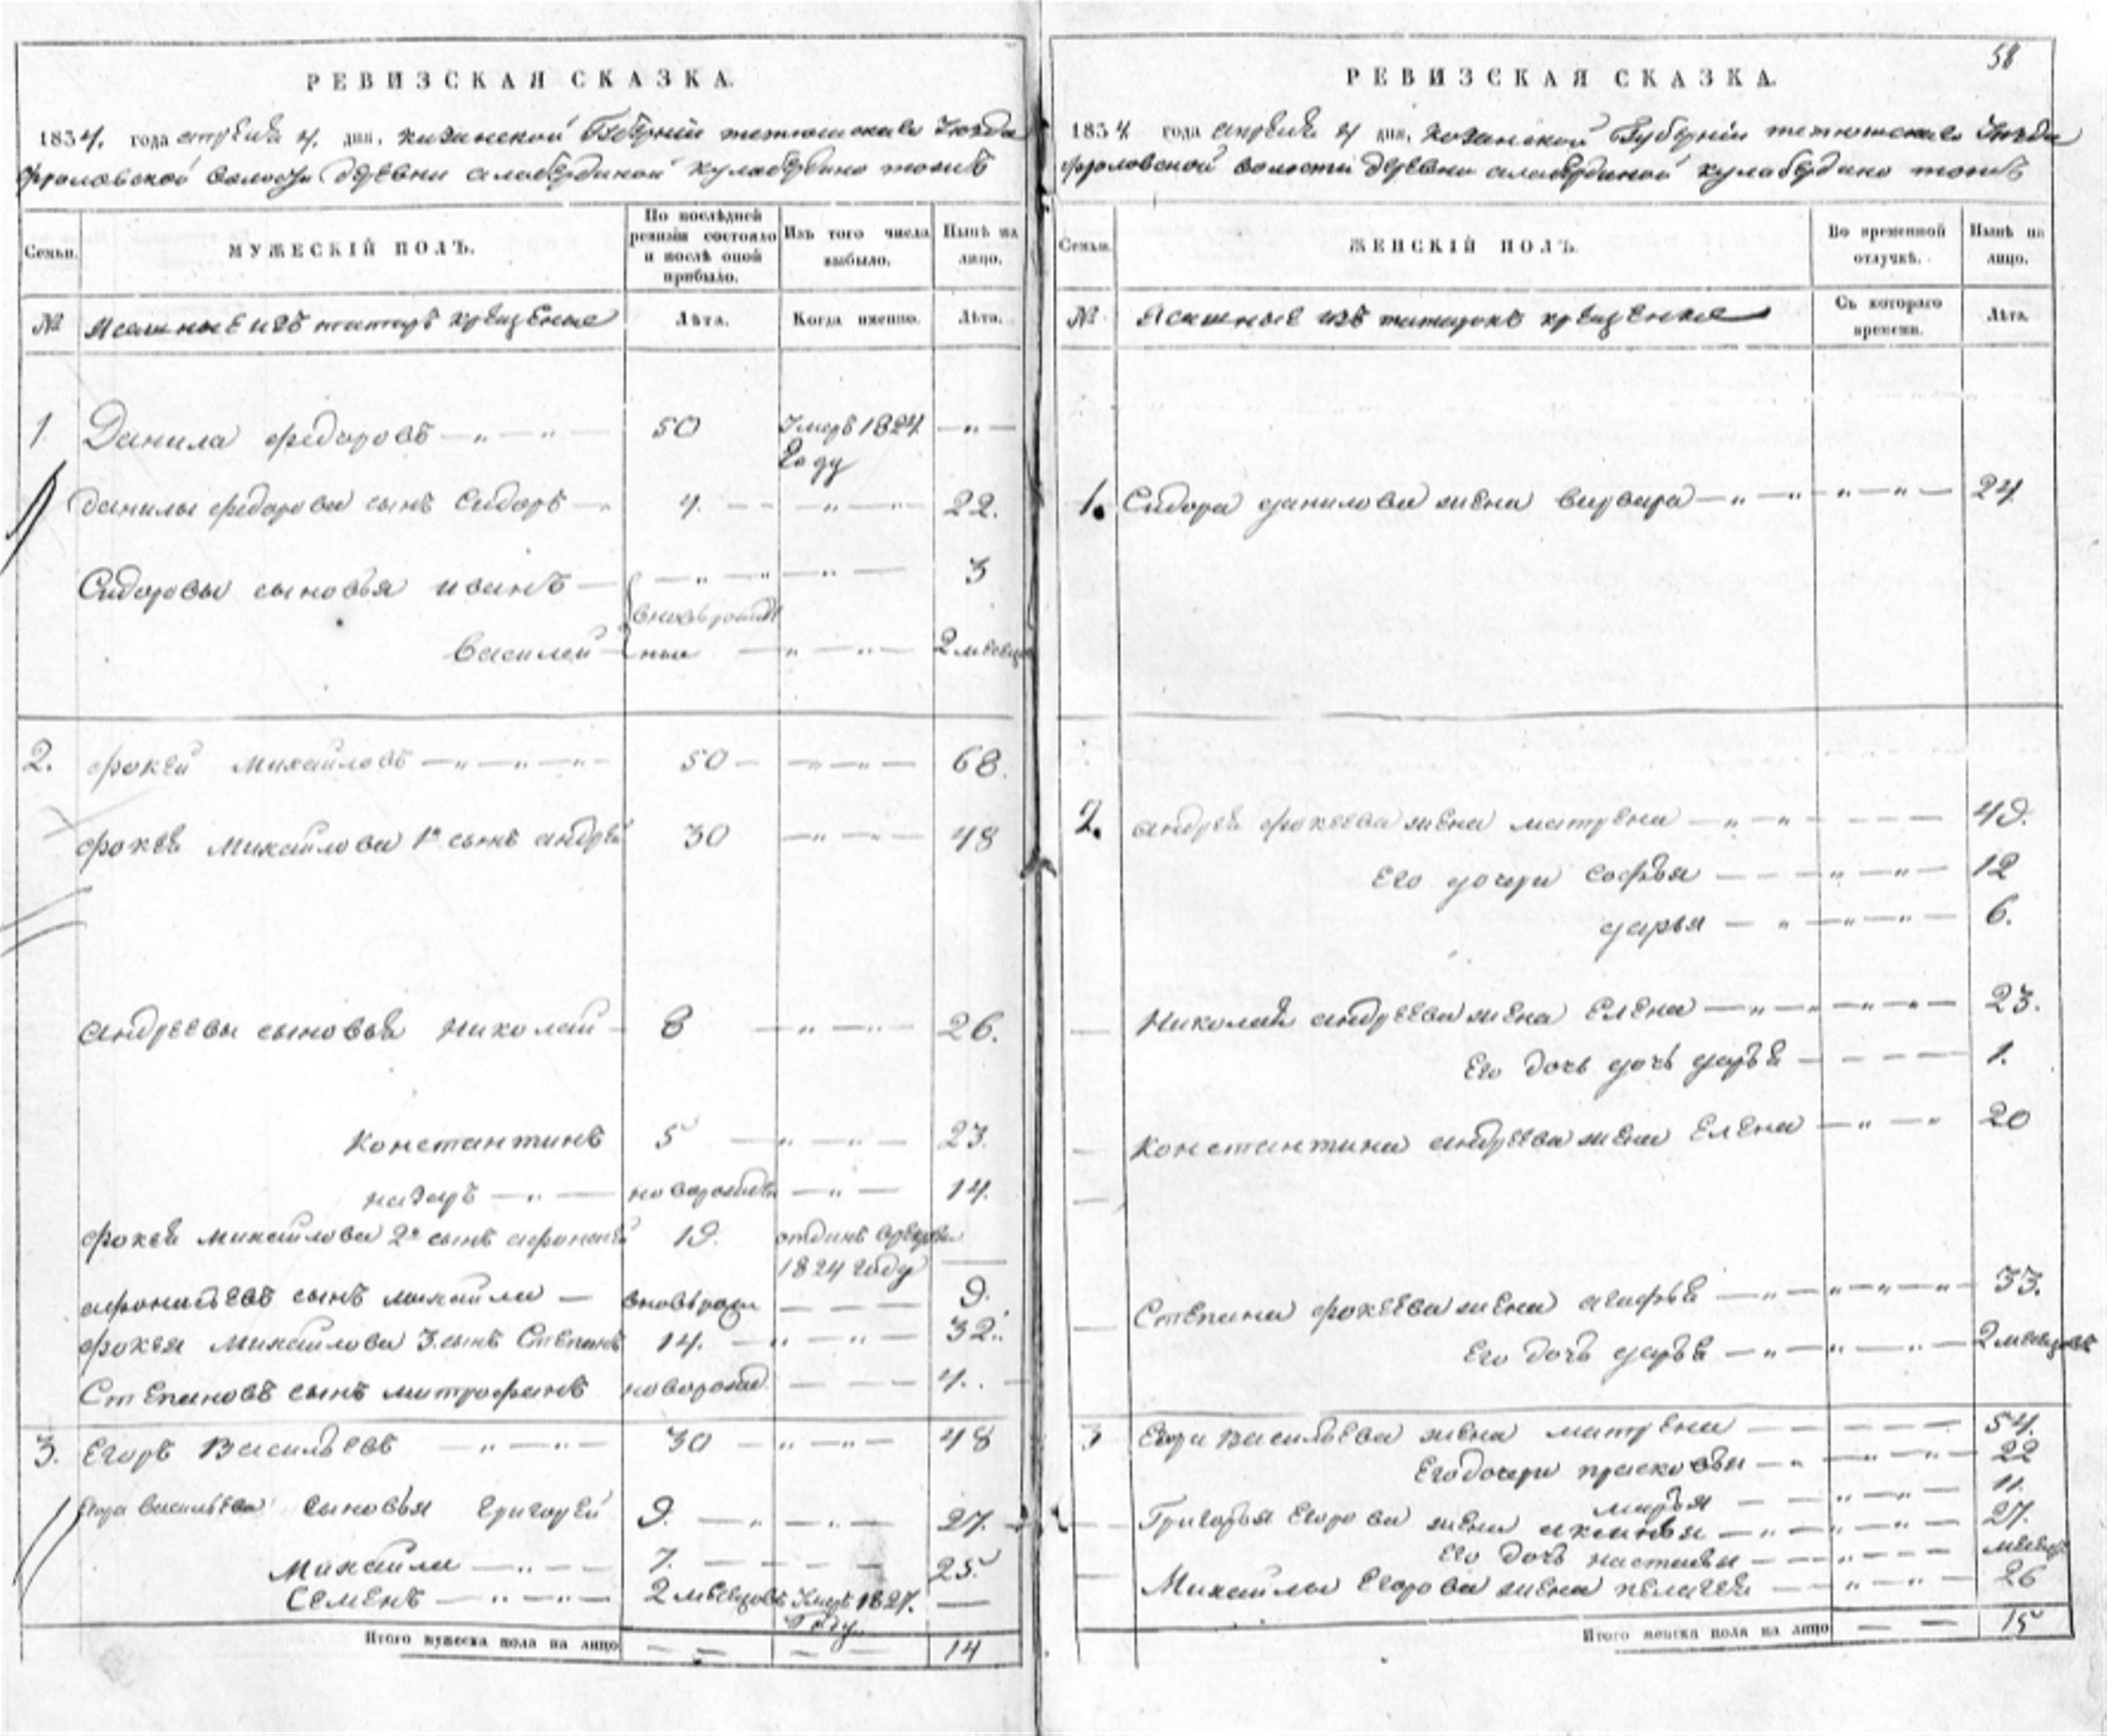 РЕВИЗСКАЯ СКАЗКА.
1834. года апреля 4. дня. казанской Губернии тетюшскаго Уезда
фроловской волости деревни алабердиной кулабердино тожъ
Семьи. МУЖЕСКІЙ ПОЛЪ. По послѣдней ревизіи состояло и послѣ оной прибыло. Изъ того числа выбыло. Нынѣ на лицо.
№ Ясашные изъ татаръ крещеные Лѣта. Когда именно. Лѣта.
1 Данила федоровъ — „ — „ — 50 Умеръ 1824 году — „ —
данилы федорова сынъ Сидоръ — 4. — — „ — 22.
Сидоровы сыновья иванъ — — „ — „ — „ — 3
вноврожден
василей — ные — „ — „ — 2 месеца
2. фокей михайловъ — „ — „ — „ — 50 — — „ — „ — 68.
фокея михайлова 1й сынъ андрей 30 — „ — „ — 48
андреевы сыновья николай — 8 — „ — „ — 26.
константинъ 5 — „ — „ — 23.
назаръ — „ — новорожден — „ — 14.
фокея михайлова 2й сынъ афонасей 19. отданъ врекруты
1824 году —
афонасьевъ сынъ михайла — вновьрожд — — — 9.
фокея михайлова 3. сынъ Степанъ 14. — „ — „ — 32.
Степановъ сынъ митрофанъ новорожд. — — — 4.
3. Егоръ Васильевъ — „ — „ — 30 — „ — „ — 48
Егора васильева сыновья григорей 9. — „ — „ — 27.
михайла — „ — „ — 7. — — — — 25
Семенъ — „ — „ — 2 месецовъ Умеръ 1827. —
году
Итого мужеска пола на лицо — — — — 14
58
РЕВИЗСКАЯ СКАЗКА.
1834 года апреля 4 дня. казанской Губернии тетюшскаго Уезда
фроловской волости деревни алабердиной кулабердино тожъ
Семьи. ЖЕНСКІЙ ПОЛЪ. Во временной отлучкѣ. Нынѣ на лицо.
№ Ясашные изъ татарокъ крещеные Съ котораго времени. Лѣта.
1. Сидора данилова жена варвара — „ — „ — „ — „ — 24
2. андрея фокеева жена матрена — „ — „ — — — 49.
Его дочери софья — — — „ — „ — 12
дарья — „ — „ — „ — 6.
николая андреева жена Елена — „ — „ — „ — 23.
Его дочь дочь дарья — — — — 1.
константина андреева жена Елена — „ — „ 20
Степана фокеева жена агафья — „ — „ — „ — 33.
Его дочь дарья — „ — „ — „ — 2 месецовъ
3 Егора васильева жена матрена — — — — 54.
Его дочери прасковья — „ — „ — „ — 22
марья — — „ — „ — 11.
Григорья Егорова жена аксинья — „ — „ — „ — 27.
Его дочь настасья — — „ — „ — месец
Михайлы Егорова жена пелагея — — „ — „ — 26
Итого женска пола на лицо — — 15